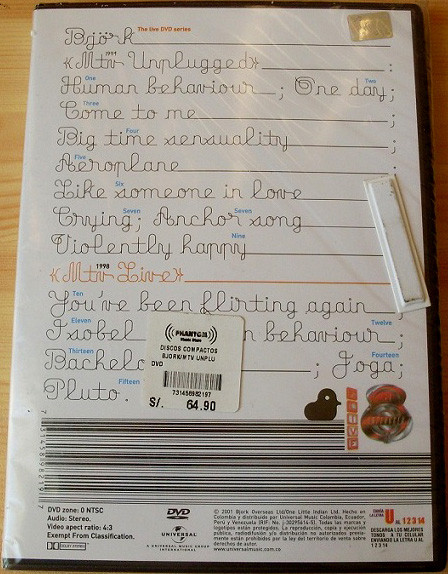 Björk The live DVD series
1994
«Mtv Unplugged»;
One Two
Human behaviour; One day;
Three
Come to me;
Four
Big time sensuality;
Five
Aeroplane;
Six
Like someone in love
Seven Seven
Crying; Anchor song
Nine
Violently happy
1998
«Mtv Live»
Ten
You've been flirting again;
Eleven Twelve
Isobel behaviour;
Thirteen Fourteen
Bachelo ; Joga;
Fifteen
Pluto.
PHANTOM
Music Store
DISCOS COMPACTOS
BJORK/MTV UNPLU
DVD
731458982197
S/. 64.90
7 31458 98219 7
DVD zone: 0 NTSC
Audio: Stereo.
Video apect ratio: 4:3
Exempt From Classification.
DOLBY DIGITAL
DVD
VIDEO
UNIVERSAL
A UNIVERSAL MUSIC GROUP
INTERNATIONAL
© 2001 Bjork Overseas Ltd/One Little Indian Ltd. Hecho en
Colombia y distribuido por Universal Music Colombia, Ecuador,
Perú y Venezuela (RIF. No. J-00295614-5). Todas las marcas y
logotipos están protegidos. La reproducción, copia y ejecución
pública, radiodifusión y/o distribución no autorizados previa-
mente están prohibidos por la ley del territorio de venta sobre
derechos de autor.
www.universalmusic.co
ENVÍA
LA LETRA U AL 12314
DESCARGA LOS MEJORES
TONOS A TU CELULAR
ENVIANDO LA LETRA U AL
12314